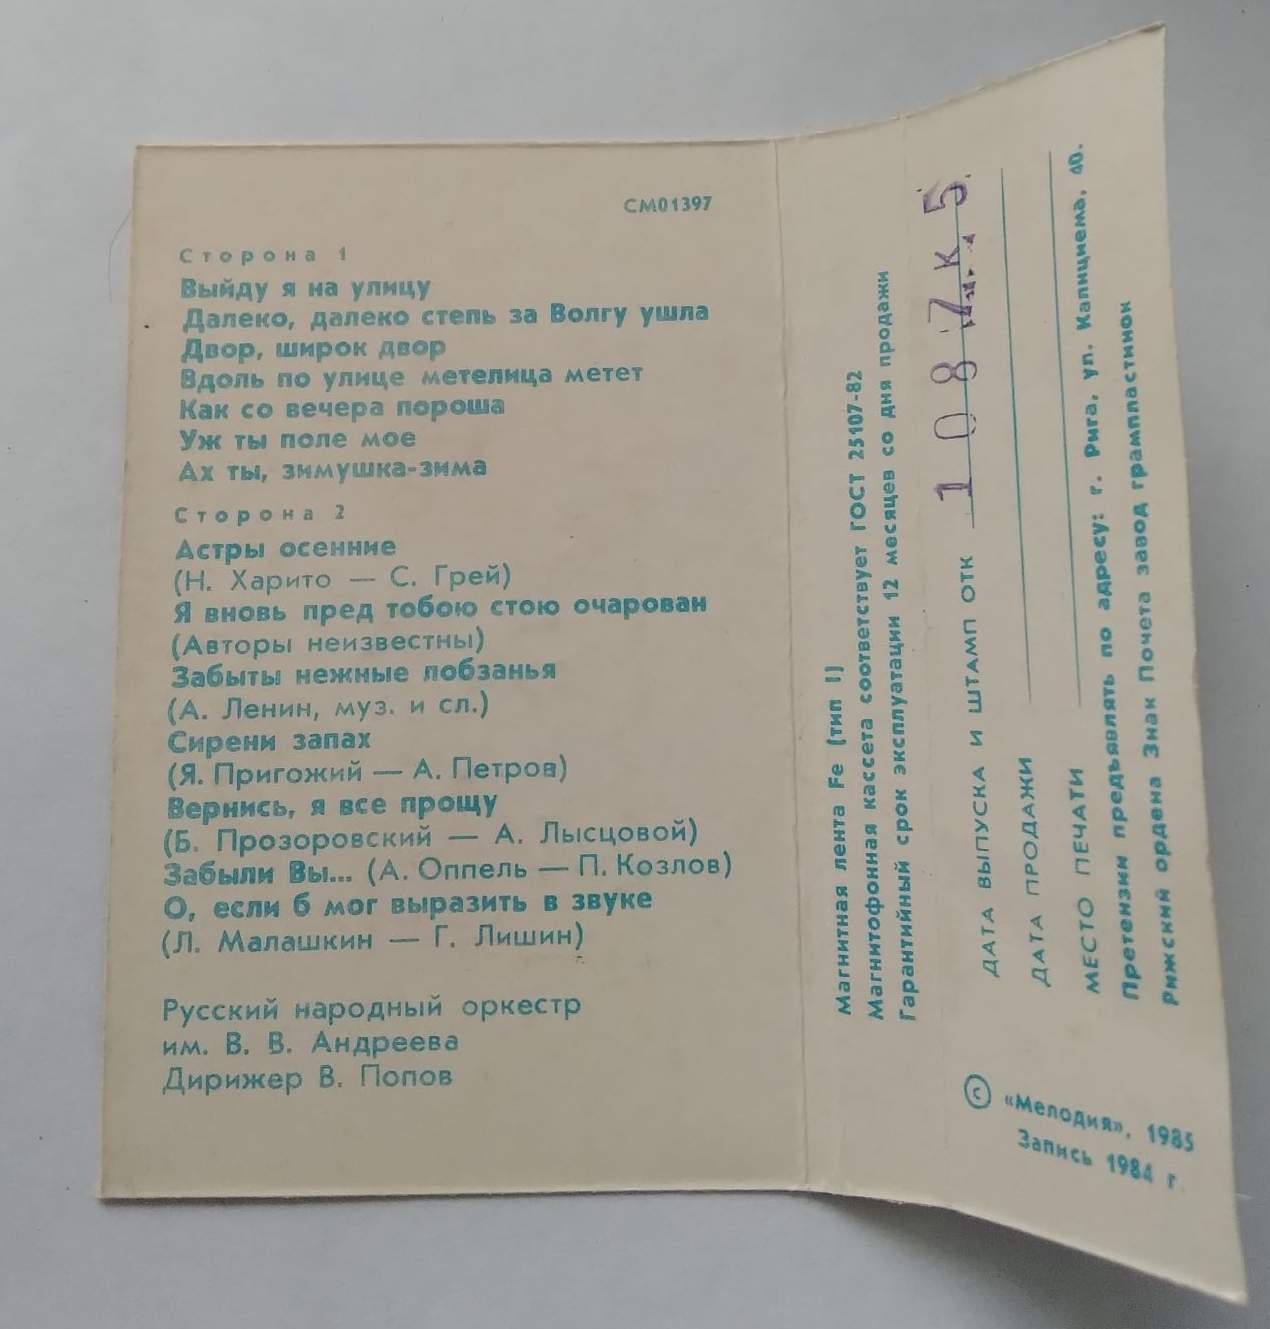 СМ01397
Сторона 1
Выйду я на улицу
Далеко, далеко степь за Волгу ушла
Двор, широк двор
Вдоль по улице метелица метет
Как со вечера пороша
Уж ты поле мое
Ах ты, зимушка-зима
Сторона 2
Астры осенние
(Н. Харито — С. Грей)
Я вновь пред тобою стою очарован
(Авторы неизвестны)
Забыты нежные лобзанья
(А. Ленин, муз. и сл.)
Сирени запах
(Я. Пригожий — А. Петров)
Вернись, я все прощу
(Б. Прозоровский — А. Лысцовой)
Забыли Вы... (А. Оппель — П. Козлов)
О, если б мог выразить в звуке
(Л. Малашкин — Г. Лишин)
Русский народный оркестр
им. В. В. Андреева
Дирижер В. Попов
Магнитная лента Fe (тип I)
Магнитофонная кассета соответствует ГОСТ 25107-82
Гарантийный срок эксплуатации 12 месяцев со дня продажи
ДАТА ВЫПУСКА И ШТАМП ОТК 1 0 8 7 К. 5
ДАТА ПРОДАЖИ
МЕСТО ПЕЧАТИ
Претензии предъявлять по адресу: г. Рига, ул. Капициема, 40.
Рижский ордена Знак Почета завод грампластинок
© «Мелодия», 1985
Запись 1984 г.